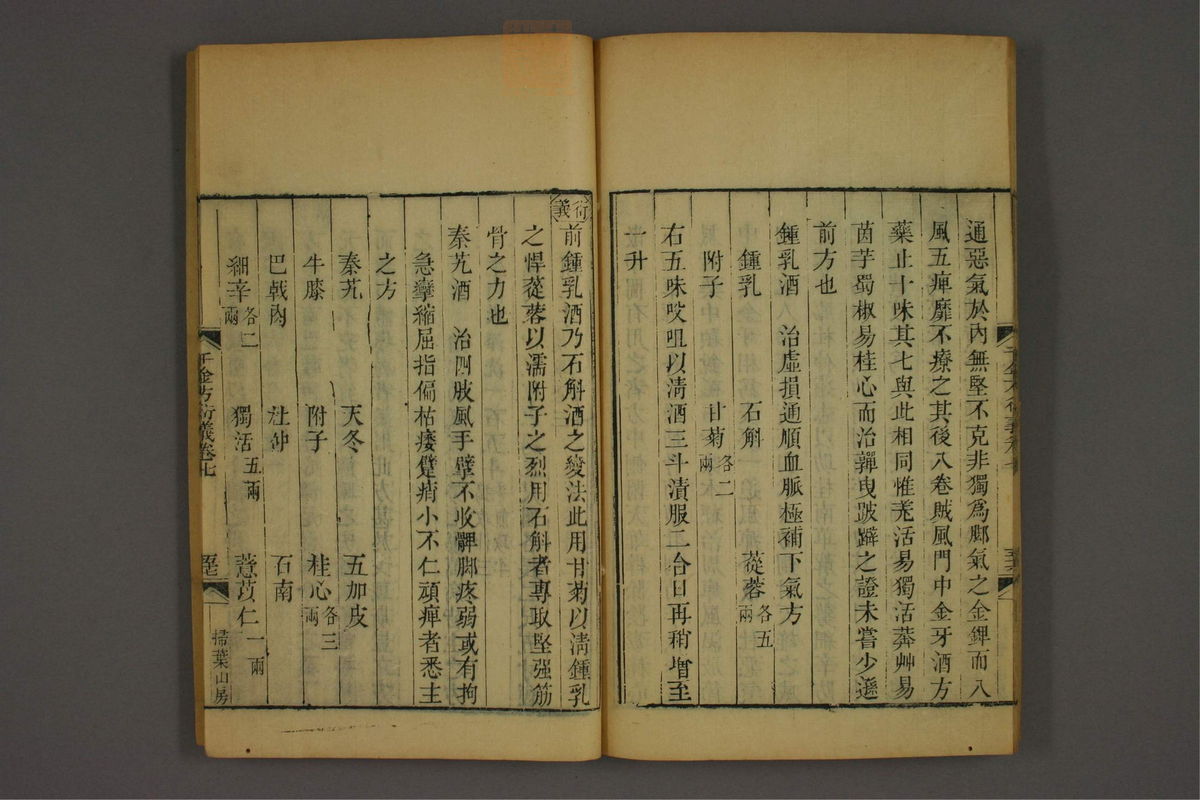 通惡氣於內無堅不克非獨爲脚氣之金鎞而八
風五痺靡不療之其後八卷賊風門中金牙酒方
藥止十味其七與此相同惟羌活易獨活莽艸易
茵芋蜀椒易桂心而治軃曳跛躃之證未嘗少遜
前方也
鍾乳酒 治虛損通順血脈極補下氣方
鍾乳 石斛 蓯蓉各五兩
附子 甘菊各二兩
右五味㕮咀以淸酒三斗漬服二合日再稍增至
一升
衍義 前鍾乳酒乃石斛酒之變法此用甘菊以淸鍾乳
之悍蓯蓉以濡附子之烈用石斛者專取堅强筋
骨之力也
秦艽酒 治四肢風手臂不收髀脚疼弱或有拘
急攣縮屈指偏枯痿躄痟小不仁頑痺者悉主
之方
秦艽 天冬 五加皮
牛膝 附子 桂心各三兩
巴戟肉 杜仲 石南
細辛各二兩 獨活五兩 薏苡仁一兩
千金方衍義卷七
掃葉山房